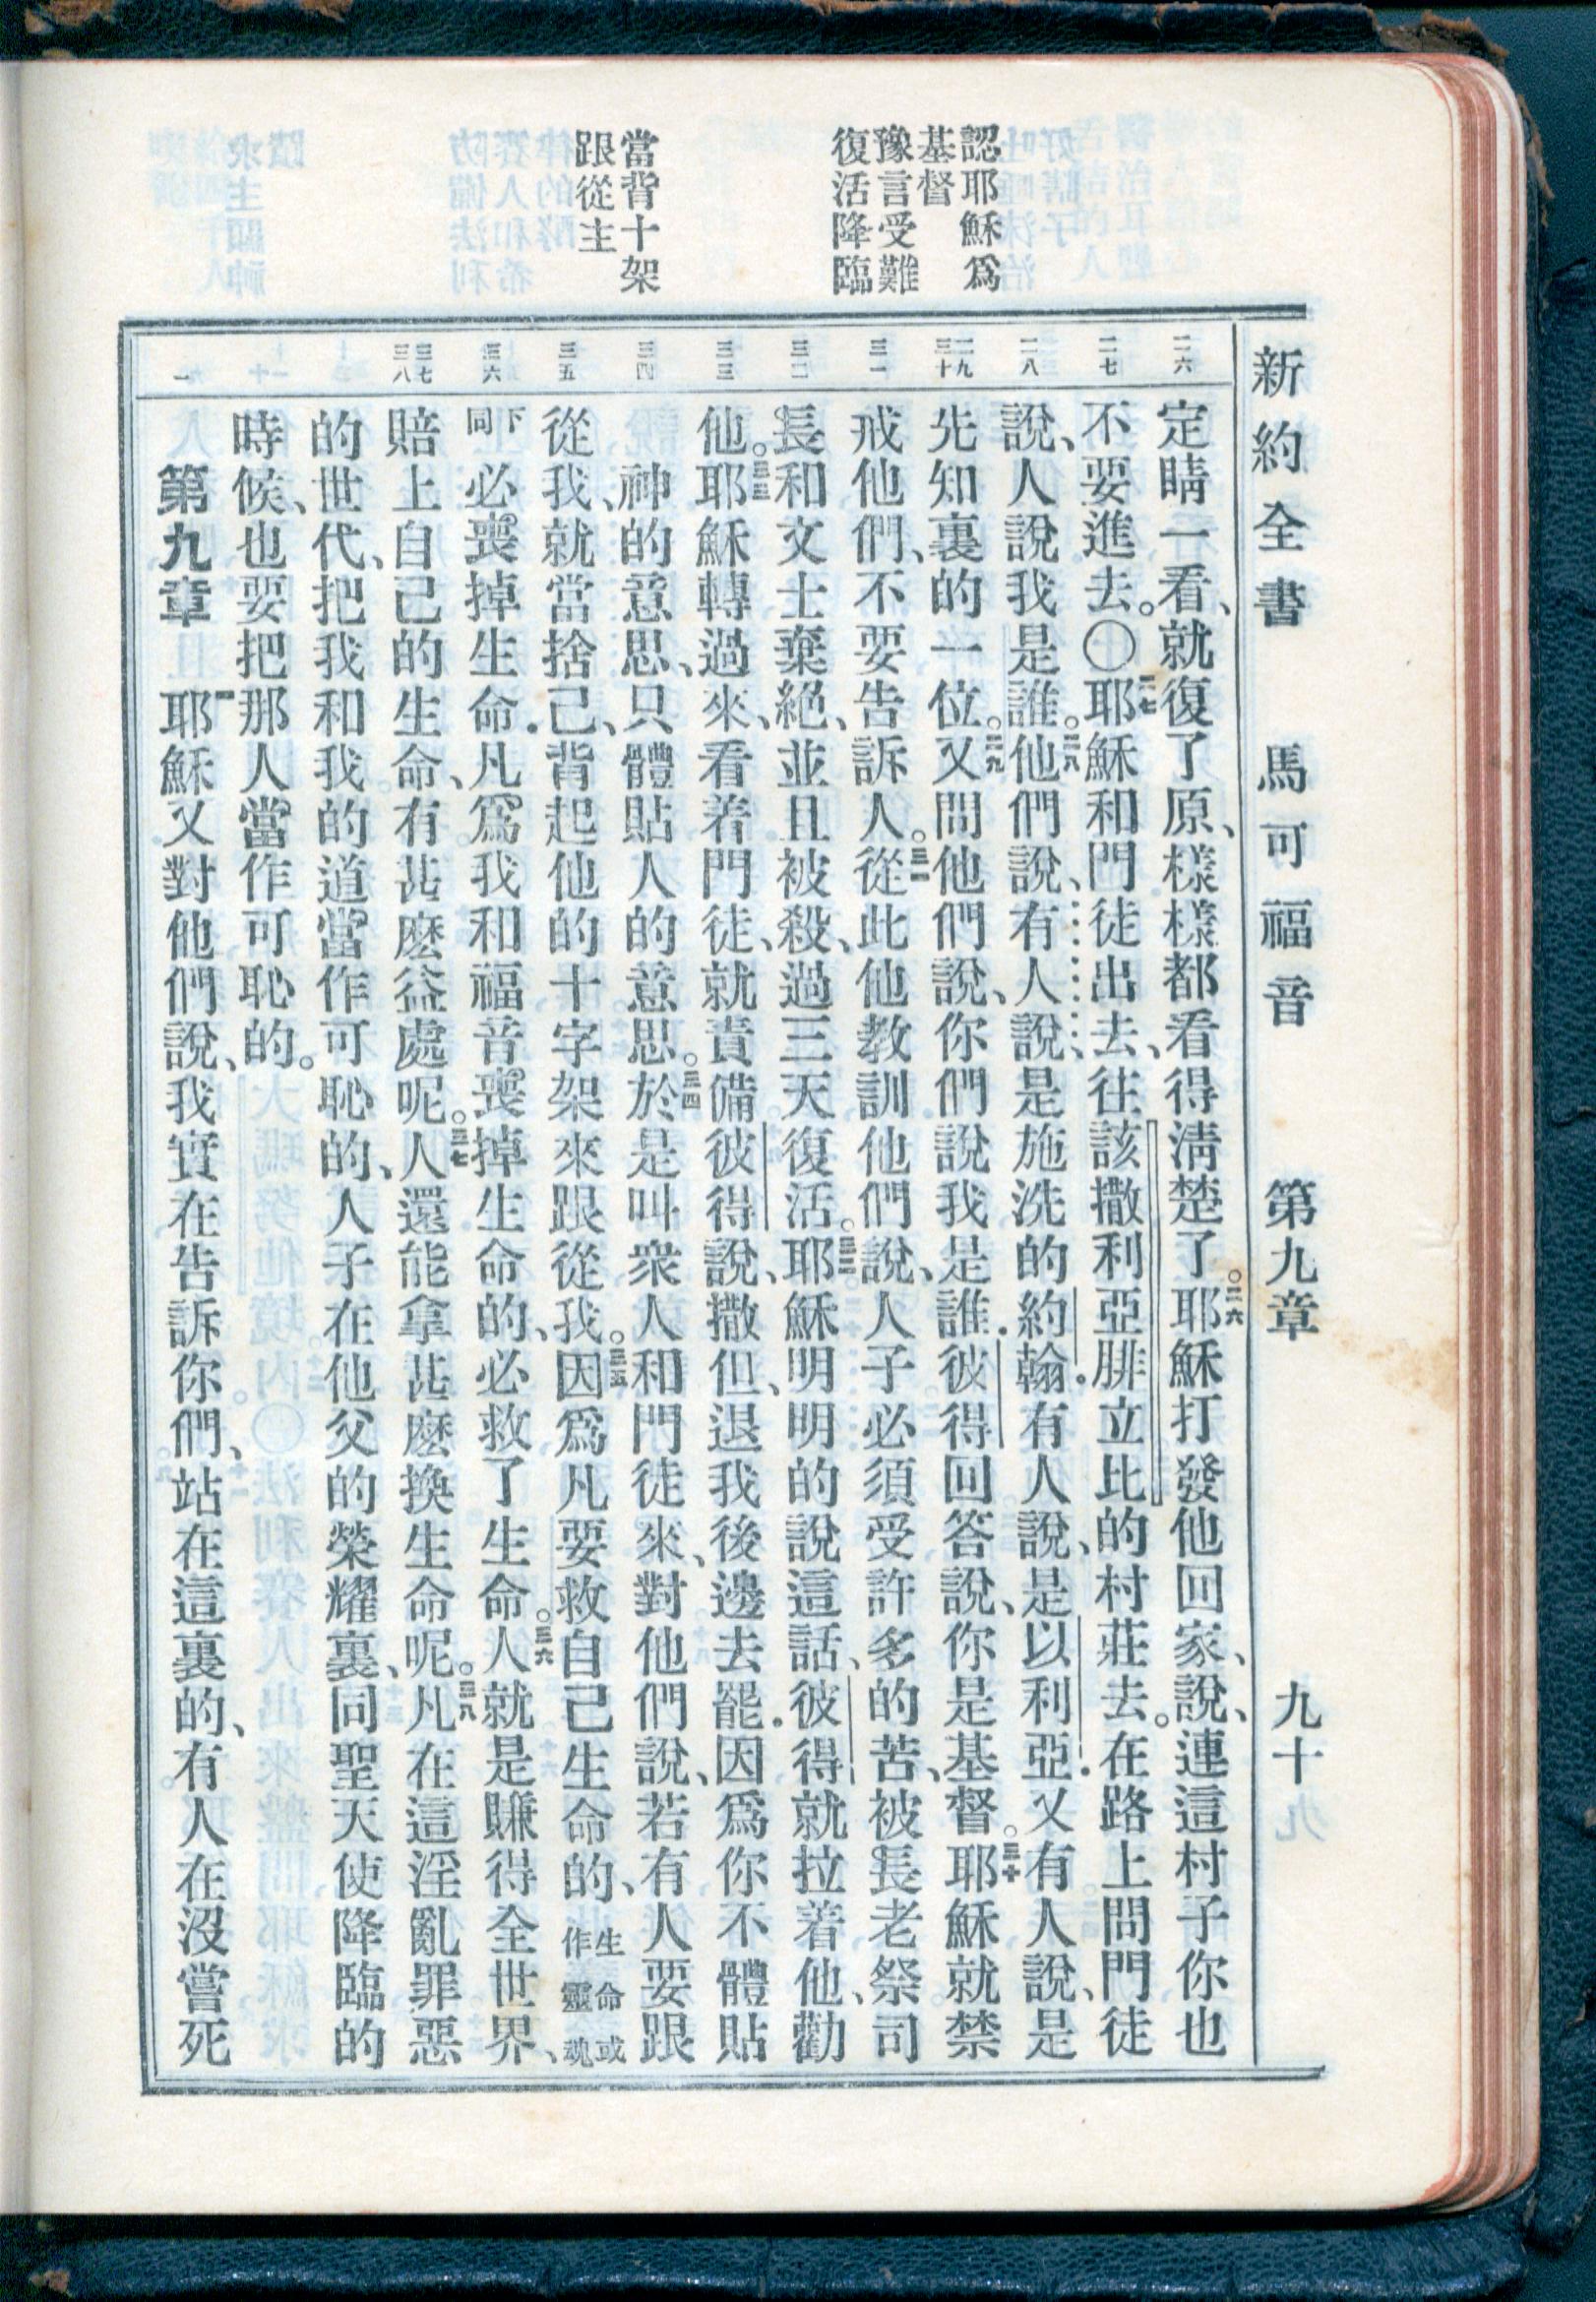 新約全書 馬可福音 第九章 九十
認耶穌爲
基督
豫言受難
復活降臨
當背十架
跟從主
二六
二七
二八
二九
三十
三一
三二
三三
三四
三五
三六
三七
三八
一
定睛一看、就復了原、樣樣都看得淸楚了。二六耶穌打發他回家、說、連這村子你也
不要進去。〇二七耶穌和門徒出去、往該撒利亞腓立比的村莊去。在路上問門徒
說、人說我是誰。二八他們說、有人說、是施洗的約翰．有人說、是以利亞．又有人說、是
先知裏的一位。二九又問他們說、你們說我是誰．彼得回答說、你是基督。三十耶穌就禁
戒他們、不要吿訴人。三一從此他教訓他們說、人子必須受許多的苦、被長老祭司
長和文士棄絕、並且被殺、過三天復活。三二耶穌明明的說這話、彼得就拉着他、勸
他。三三耶穌轉過來、看着門徒、就責備彼得說、撒但、退我後邊去罷．因爲你不體貼
神的意思、只體貼人的意思。三四於是叫衆人和門徒來、對他們說、若有人要跟
從我、就當捨己、背起他的十字架來跟從我。三五因爲凡要救自己生命的、生命或作靈魂
下同 必喪掉生命．凡爲我和福音喪掉生命的、必救了生命。三六人就是賺得全世界、
賠上自己的生命、有甚麽益處呢。三七人還能拿甚麽換生命呢。三八凡在這淫亂罪惡
的世代、把我和我的道當作可恥的、人子在他父的榮耀裏、同聖天使降臨的
時候、也要把那人當作可恥的。
第九章 一耶穌又對他們說、我實在吿訴你們、站在這裏的、有人在沒嘗死